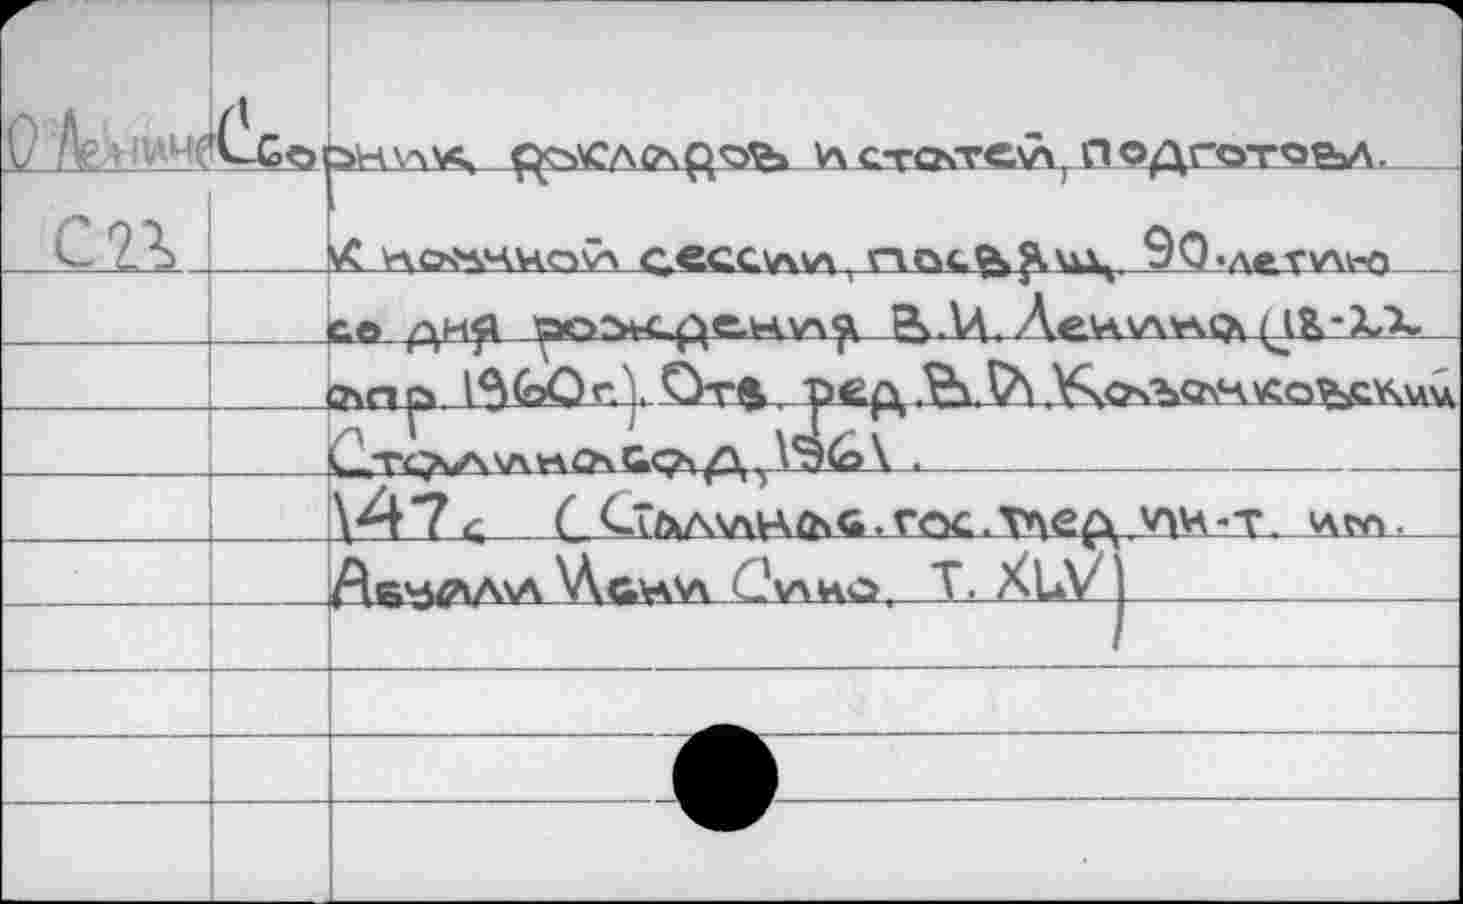 О Ленине Сборник докладов и статей, подготовл.
С23 к научной сессии, посвящ. 90-летию
со дня рождения В.И. Ленина (18-22
апр. 1960 г.). Отв. ред. В.Я. Казачковский
Сталинабад, 1961.
147 с (Сталинаб. гос. пед. ин-т. им.
Абуали Ибни Сино. Т. XLV)